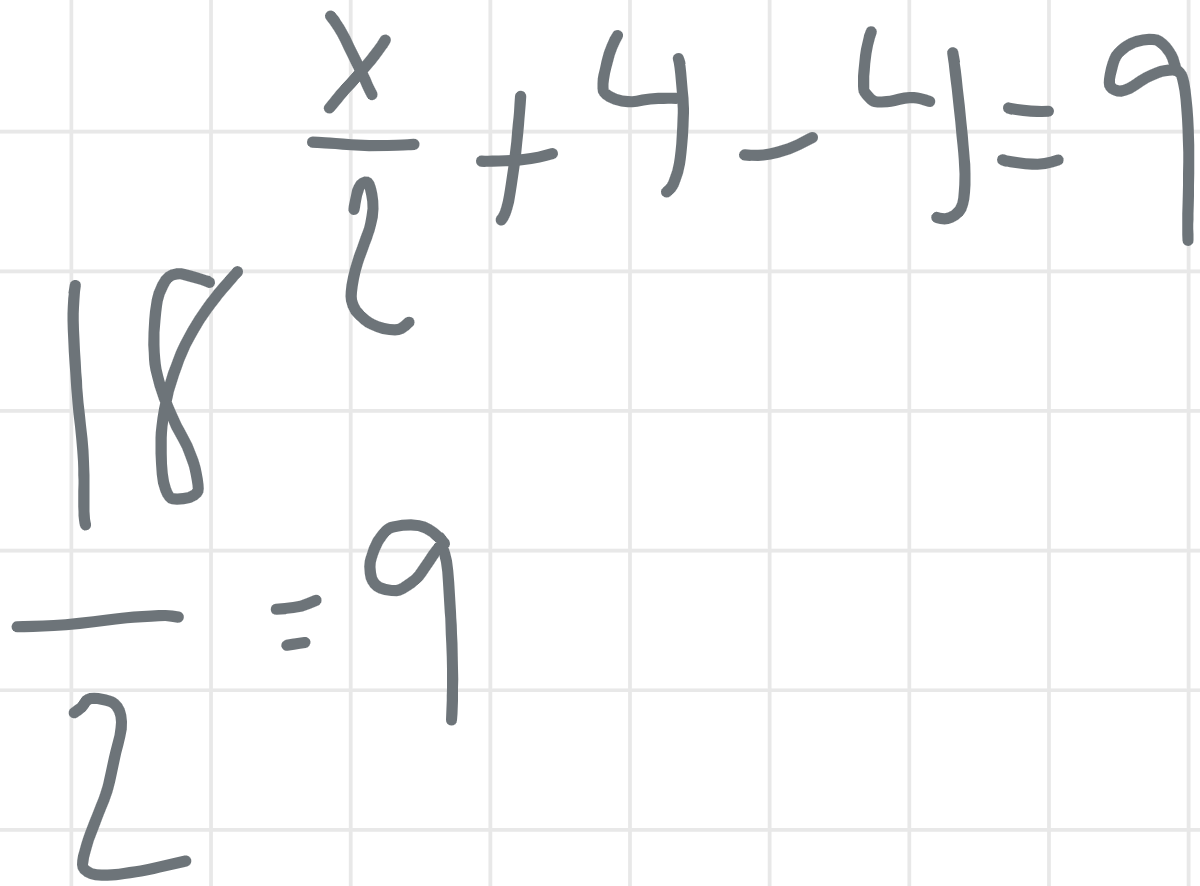 x/2 + 4 - 4 = 9
18/2 = 9